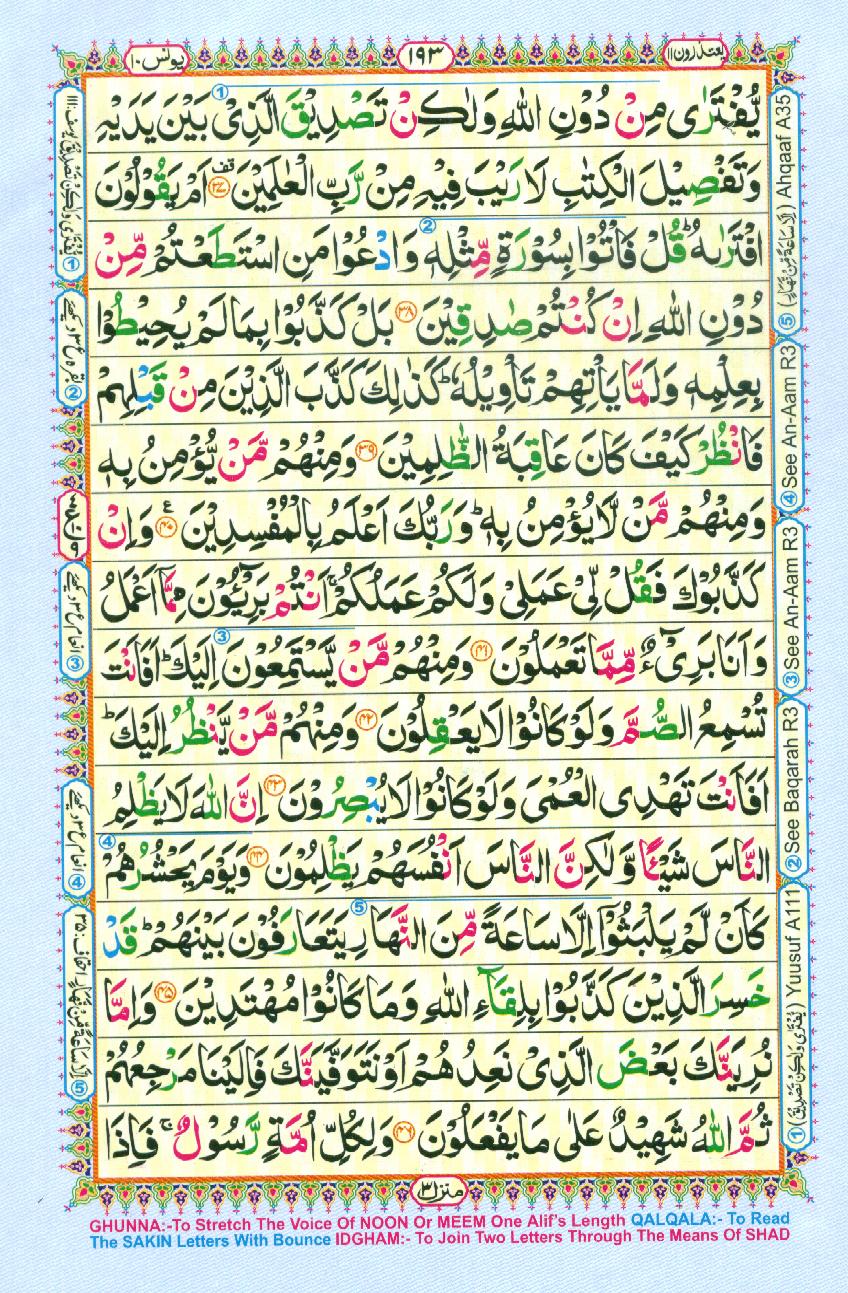 یونس ۱۰
۱۹۳
یعتذرون ۱۱
یُّفْتَرٰی مِنْ دُوْنِ اللّٰهِ وَلٰکِنْ تَصْدِیْقَ الَّذِیْ بَیْنَ یَدَیْهِ
وَتَفْصِیْلَ الْکِتٰبِ لَا رَیْبَ فِیْهِ مِنْ رَّبِّ الْعٰلَمِیْنَ ۳۷ قف اَمْ یَقُوْلُوْنَ
افْتَرٰىهُ ؕ قُلْ فَاْتُوْا بِسُوْرَةٍ مِّثْلِهٖ وَادْعُوْا مَنِ اسْتَطَعْتُمْ مِّنْ
دُوْنِ اللّٰهِ اِنْ کُنْتُمْ صٰدِقِیْنَ ۳۸ بَلْ کَذَّبُوْا بِمَا لَمْ یُحِیْطُوْا
بِعِلْمِهٖ وَلَمَّا یَاْتِهِمْ تَاْوِیْلُهٗ ؕ کَذٰلِكَ کَذَّبَ الَّذِیْنَ مِنْ قَبْلِهِمْ
فَانْظُرْ کَیْفَ کَانَ عَاقِبَةُ الظّٰلِمِیْنَ ۳۹ وَمِنْهُمْ مَّنْ یُّؤْمِنُ بِهٖ
وَمِنْهُمْ مَّنْ لَّا یُؤْمِنُ بِهٖ ؕ وَرَبُّكَ اَعْلَمُ بِالْمُفْسِدِیْنَ ۴۰ ع وَاِنْ
کَذَّبُوْكَ فَقُلْ لِّیْ عَمَلِیْ وَلَکُمْ عَمَلُکُمْ ۚ اَنْتُمْ بَرِیْٓـُٔوْنَ مِمَّاۤ اَعْمَلُ
وَاَنَا بَرِیْٓءٌ مِّمَّا تَعْمَلُوْنَ ۴۱ وَمِنْهُمْ مَّنْ یَّسْتَمِعُوْنَ اِلَیْكَ ؕ اَفَاَنْتَ
تُسْمِعُ الصُّمَّ وَلَوْ کَانُوْا لَا یَعْقِلُوْنَ ۴۲ وَمِنْهُمْ مَّنْ یَّنْظُرُ اِلَیْكَ ؕ
اَفَاَنْتَ تَهْدِی الْعُمْیَ وَلَوْ کَانُوْا لَا یُبْصِرُوْنَ ۴۳ اِنَّ اللّٰهَ لَا یَظْلِمُ
النَّاسَ شَیْـًٔا وَّلٰکِنَّ النَّاسَ اَنْفُسَهُمْ یَظْلِمُوْنَ ۴۴ وَیَوْمَ یَحْشُرُهُمْ
کَاَنْ لَّمْ یَلْبَثُوْۤا اِلَّا سَاعَةً مِّنَ النَّهَارِ یَتَعَارَفُوْنَ بَیْنَهُمْ ؕ قَدْ
خَسِرَ الَّذِیْنَ کَذَّبُوْا بِلِقَآءِ اللّٰهِ وَمَا کَانُوْا مُهْتَدِیْنَ ۴۵ وَاِمَّا
نُرِیَنَّكَ بَعْضَ الَّذِیْ نَعِدُهُمْ اَوْ نَتَوَفَّیَنَّكَ فَاِلَیْنَا مَرْجِعُهُمْ
ثُمَّ اللّٰهُ شَهِیْدٌ عَلٰی مَا یَفْعَلُوْنَ ۴۶ وَلِکُلِّ اُمَّةٍ رَّسُوْلٌ ۚ فَاِذَا
منزل ۳
⑤ (اِلَّا سَاعَةً مِّنْ نَّهَارٍ) Ahqaaf A35
④ See An-Aam R3
③ See An-Aam R3
② See Baqarah R3
① (یُّفْتَرٰی وَلٰکِنْ تَصْدِیْقَ) Yuusuf A111
GHUNNA:-To Stretch The Voice Of NOON Or MEEM One Alif's Length QALQALA:- To Read
The SAKIN Letters With Bounce IDGHAM:- To Join Two Letters Through The Means Of SHAD